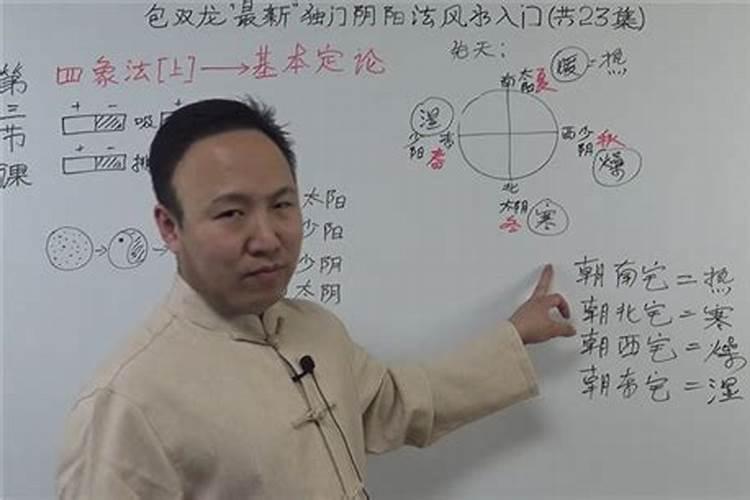 包双龙"最新"独门阴阳法风水入门(共23集)
第三节课
四象法[上]→基本定论
+ -
吸
+ -
排
太阳
少阳
少阴
太阴
先天:
南 太阳 夏 暖=热
湿
少阳 东 春
西 少阴 秋
燥
北
太阴
冬 寒
朝南宅=热
朝北宅=寒
朝西宅=燥
朝东宅=湿